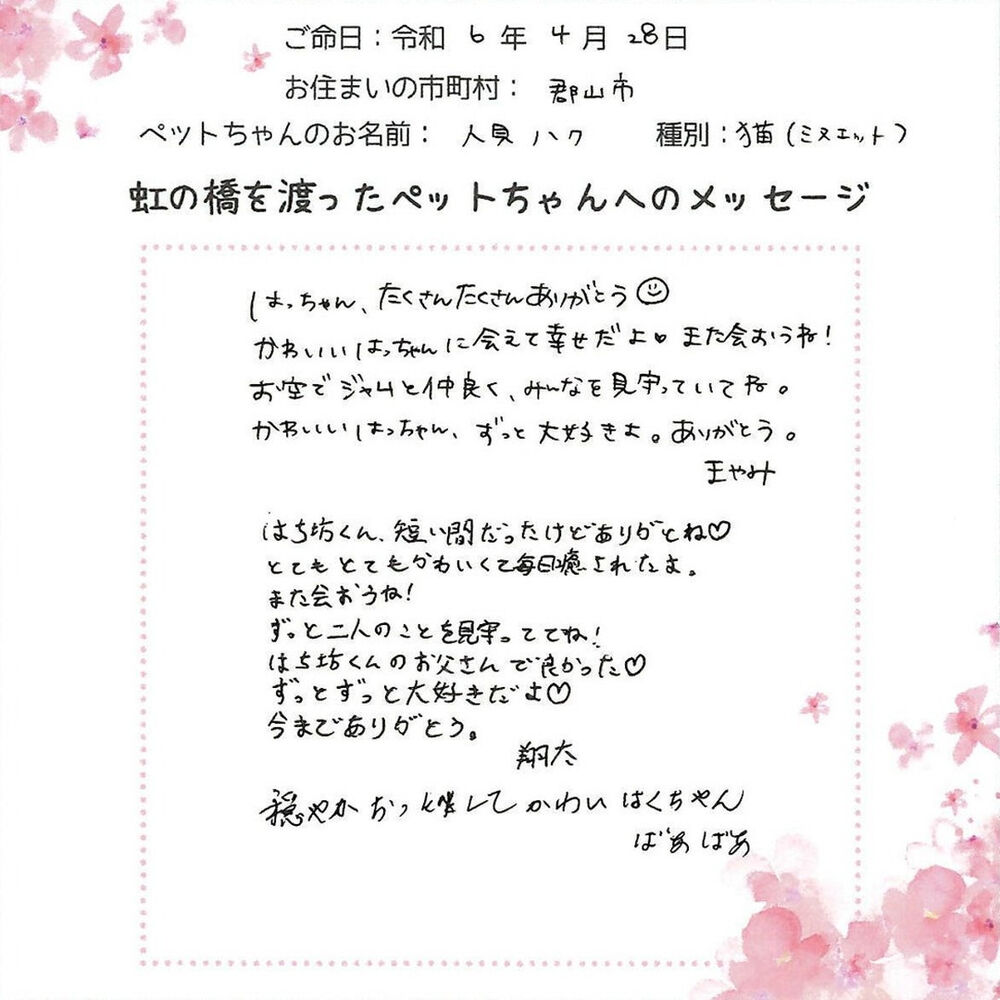 ご命日：令和 6 年 4 月 28日
お住まいの市町村： 郡山市
ペットちゃんのお名前： 人見 ハク 種別：猫（ミヌエット）
虹の橋を渡ったペットちゃんへのメッセージ
はっちゃん、たくさんたくさんありがとう
かわいいはっちゃんに会えて幸せだよ♥ また会おうね！
お空でジャムと仲良く、みんなを見守っていてね。
かわいいはっちゃん、ずっと大好きよ。ありがとう。
まやみ
はち坊くん、短い間だったけどありがとね♡
とてもとてもかわいくて毎日癒されたよ。
また会おうね！
ずっと二人のことを見守っててね！
はち坊くんのお父さんで良かった♡
ずっとずっと大好きだよ♡
今までありがとう。
翔太
穏やか かわいい はくちゃん
ばあばあ